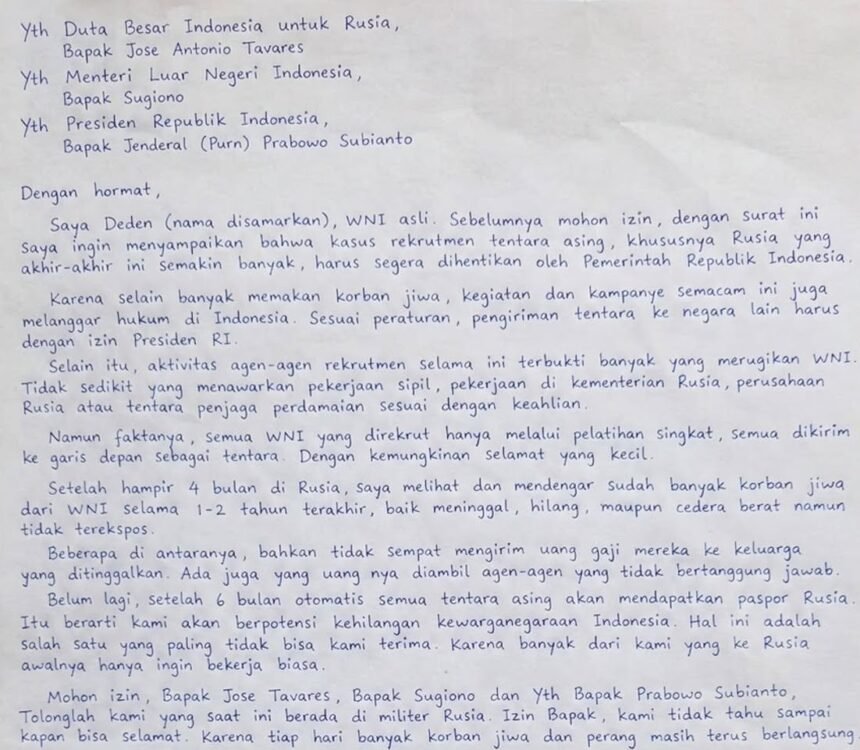 Yth Duta Besar Indonesia untuk Rusia,
Bapak Jose Antonio Tavares
Yth Menteri Luar Negeri Indonesia,
Bapak Sugiono
Yth Presiden Republik Indonesia,
Bapak Jenderal (Purn) Prabowo Subianto
Dengan hormat,
Saya Deden (nama disamarkan), WNI asli. Sebelumnya mohon izin, dengan surat ini
saya ingin menyampaikan bahwa kasus rekrutmen tentara asing, khususnya Rusia yang
akhir-akhir ini semakin banyak, harus segera dihentikan oleh Pemerintah Republik Indonesia.
Karena selain banyak memakan korban jiwa, kegiatan dan kampanye semacam ini juga
melanggar hukum di Indonesia. Sesuai peraturan, pengiriman tentara ke negara lain harus
dengan izin Presiden RI.
Selain itu, aktivitas agen-agen rekrutmen selama ini terbukti banyak yang merugikan WNI.
Tidak sedikit yang menawarkan pekerjaan sipil, pekerjaan di kementerian Rusia, perusahaan
Rusia atau tentara penjaga perdamaian sesuai dengan keahlian.
Namun faktanya, semua WNI yang direkrut hanya melalui pelatihan singkat, semua dikirim
ke garis depan sebagai tentara. Dengan kemungkinan selamat yang kecil.
Setelah hampir 4 bulan di Rusia, saya melihat dan mendengar sudah banyak korban jiwa
dari WNI selama 1-2 tahun terakhir, baik meninggal, hilang, maupun cedera berat namun
tidak terekspos.
Beberapa di antaranya, bahkan tidak sempat mengirim uang gaji mereka ke keluarga
yang ditinggalkan. Ada juga yang uang nya diambil agen-agen yang tidak bertanggung jawab.
Belum lagi, setelah 6 bulan otomatis semua tentara asing akan mendapatkan paspor Rusia.
Itu berarti kami akan berpotensi kehilangan kewarganegaraan Indonesia. Hal ini adalah
salah satu yang paling tidak bisa kami terima. Karena banyak dari kami yang ke Rusia
awalnya hanya ingin bekerja biasa.
Mohon izin, Bapak Jose Tavares, Bapak Sugiono dan Yth Bapak Prabowo Subianto,
Tolonglah kami yang saat ini berada di militer Rusia. Izin Bapak, kami tidak tahu sampai
kapan bisa selamat. Karena tiap hari banyak korban jiwa dan perang masih terus berlangsung.